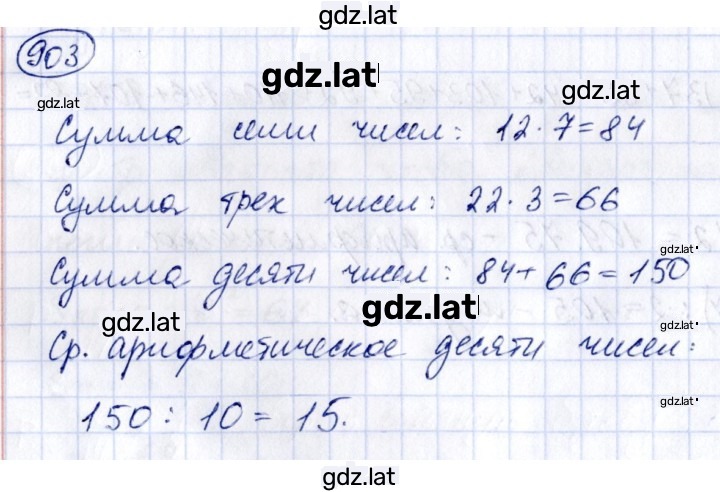 gdz.lat
903
gdz.lat
gdz.lat
gdz.lat
Сумма семи чисел: 12·7=84
Сумма трех чисел: 22·3=66
gdz.lat
Сумма десяти чисел: 84+66=150
gdz.lat
gdz.lat
gdz.lat
Ср. арифметическое десяти чисел:
150:10=15.
gdz.lat
gdz.lat